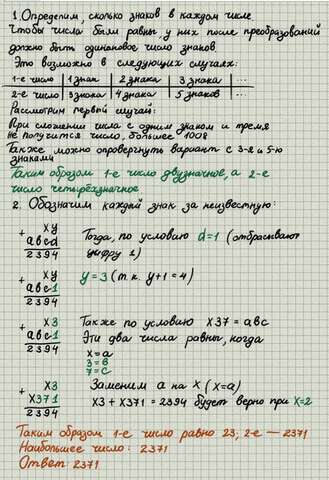 1. Определим, сколько знаков в каждом числе
Чтобы числа были равны у них после преобразований
должно быть одинаковое число знаков
Это возможно в следующих случаях:
1-е число | 1 знак | 2 знака | 3 знака | ...
2-е число | 3 знака | 4 знака | 5 знаков | ...
Рассмотрим первый случай:
При сложении числа с одним знаком и тремя
не получится число, большее 1008
Также можно опровергнуть вариант с 3-я и 5-ю
знаками
Таким образом 1-е число двузначное, а 2-е
число четырёхзначное
2. Обозначим каждый знак за неизвестную:
+ xy
abcd
2394
Тогда, по условию d=1 (отбрасывают
цифру 1)
+ xy
abc1
2394
y=3 (т.к. y+1=4)
+ x3
abc1
2394
Также по условию x37 = abc
Эти два числа равны, когда
x=a
3=b
7=c
+ x3
x371
2394
Заменим a на x (x=a)
x3 + x371 = 2394 будет верно при x=2
Таким образом 1-е число равно 23, 2-е — 2371
Наибольшее число: 2371
Ответ 2371